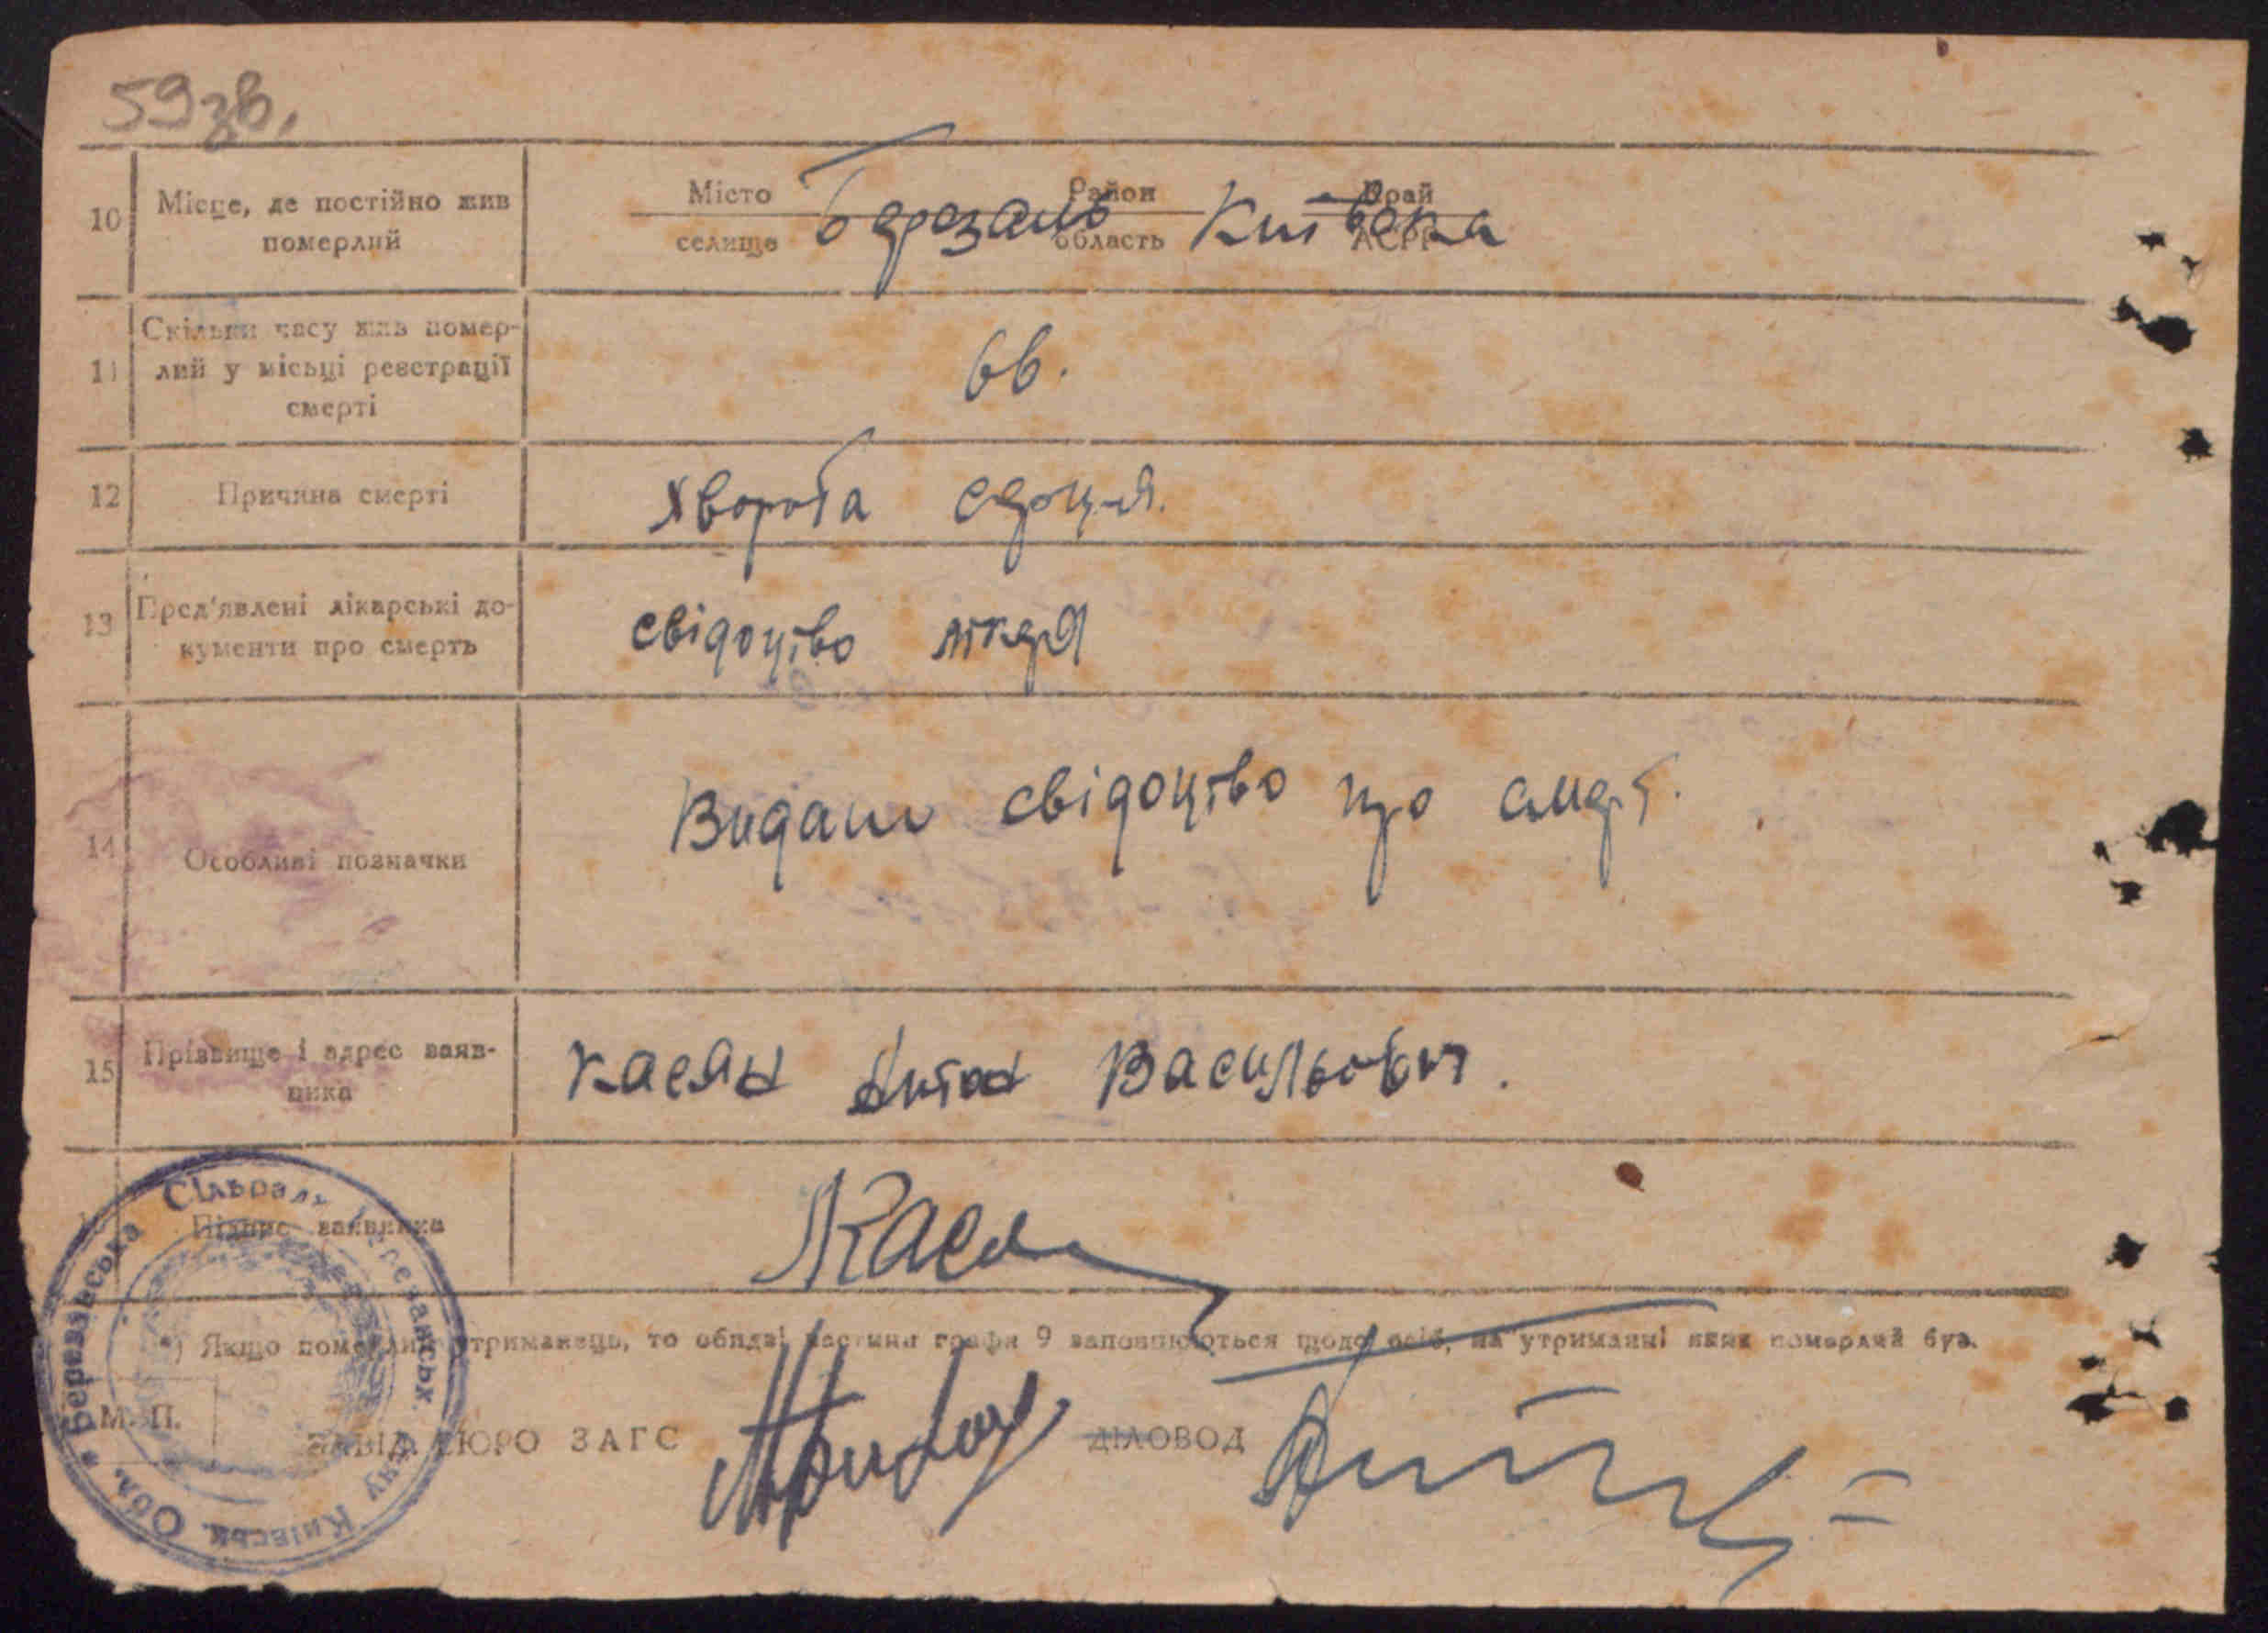 59зв.
10 Місце, де постійно жив померлий
Місто селище Район область Край АСРР
Березань Київська
11 Скільки часу жив померлий у місьці реєстрації смерті
66.
12 Причина смерті
хвороба серця.
13 Пред'явлені лікарські документи про смерть
свідоцтво лікаря
14 Особливі позначки
Видани свідоцтво про смерт.
15 Прізвище і адрес заявника
Касян Антон Васильович.
Підпис заявника
Касян
*) Якщо померлий утриманець, то обидві частини графи 9 заповнюються щодо осіб, на утриманні яких померлий був.
М. П.
ЗАВІД. БЮРО ЗАГС ДІЛОВОД
Сільрада
Київськ. Обл.